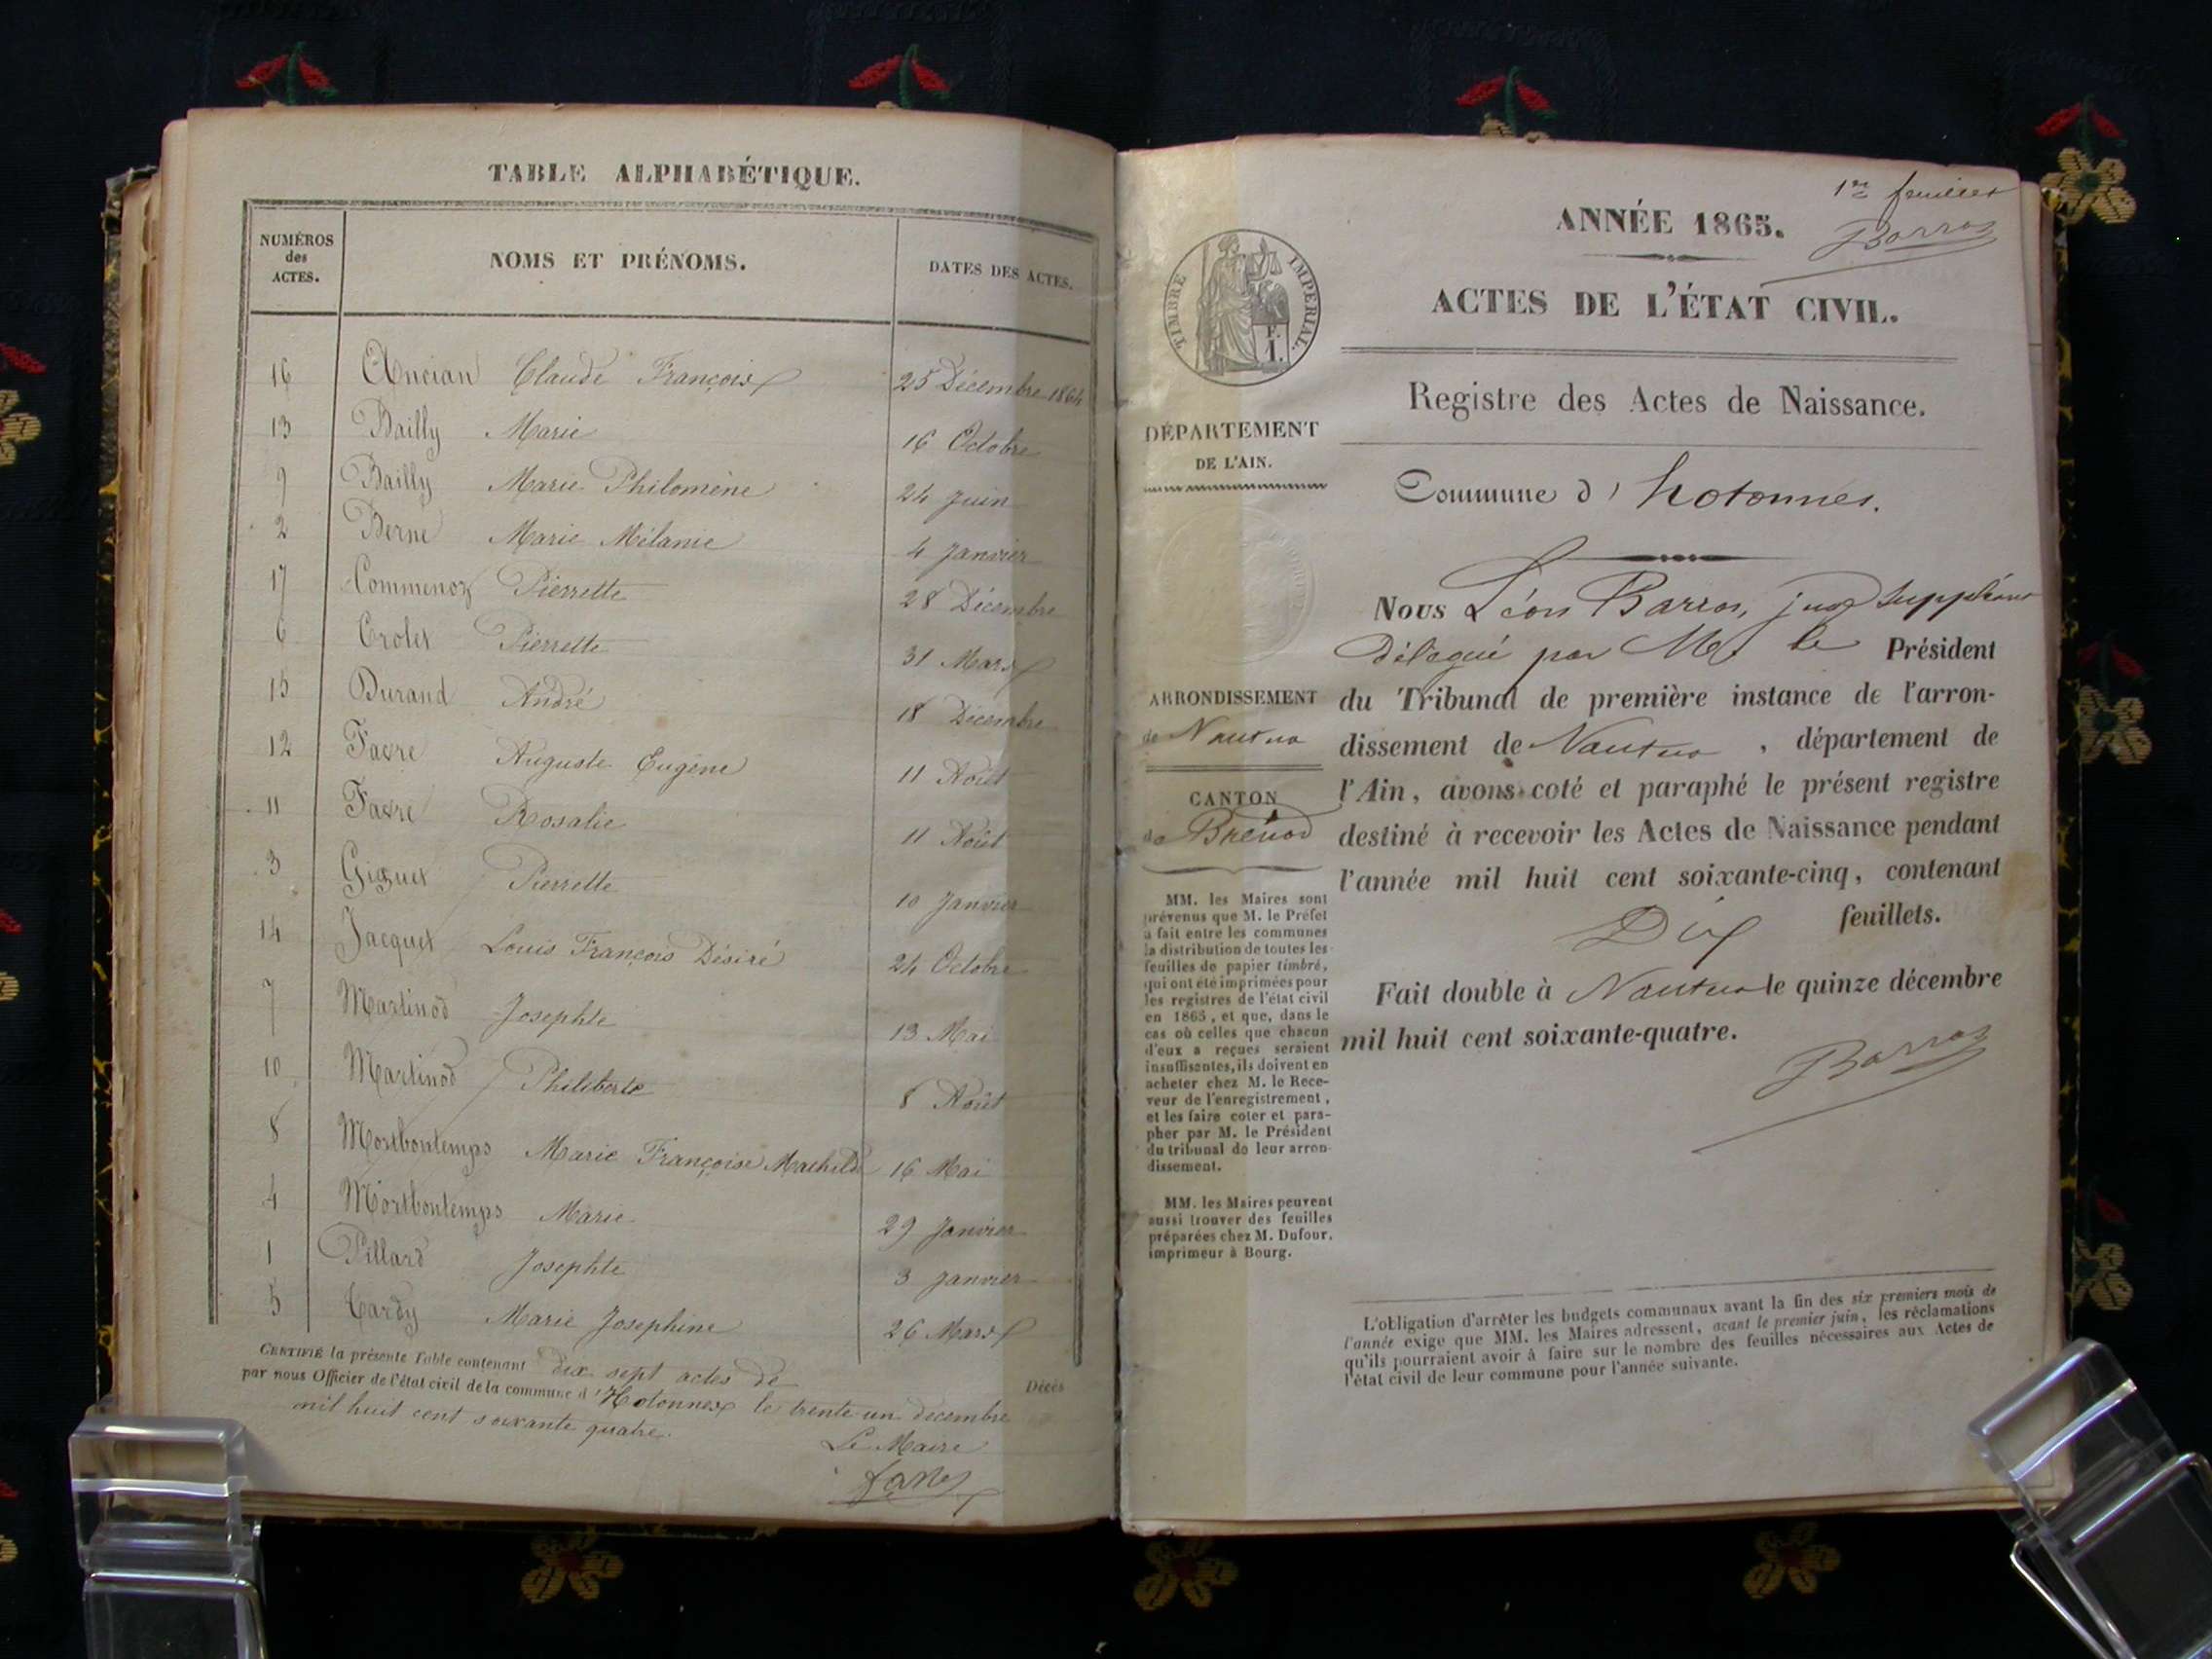 TABLE ALPHABÉTIQUE.
NUMÉROS des ACTES.
NOMS ET PRÉNOMS.
DATES DES ACTES.
16 Ancian Claude François 25 Décembre 1864
13 Bailly Marie 16 Octobre
9 Bailly Marie Philomène 24 Juin
2 Berne Marie Mélanie 4 Janvier
17 Commenoz Pierrette 28 Décembre
6 Crolet Pierrette 31 Mars
15 Durand André 18 Décembre
12 Favre Auguste Eugène 11 Août
11 Favre Rosalie 11 Août
3 Giguet Pierrette 10 Janvier
14 Jacquet Louis François Désiré 24 Octobre
7 Martinod Josephte 13 Mai
10 Martinod Philiberte 8 Août
8 Mortbontemps Marie Françoise Mathilde 16 Mai
4 Mortbontemps Marie 29 Janvier
1 Pillard Josephte 3 Janvier
5 Tardy Marie Josephine 26 Mars
CERTIFIÉ la présente Table contenant dix sept actes de Décès
par nous Officier de l'état civil de la commune d'Hotonnes le trente un décembre
mil huit cent soixante quatre.
Le Maire
1er feuillet
Barros
ANNÉE 1865.
ACTES DE L'ÉTAT CIVIL.
Registre des Actes de Naissance.
Commune d'hotonnes.
TIMBRE IMPERIAL.
F.
1.
DÉPARTEMENT
DE L'AIN.
ARRONDISSEMENT
de Nantua
CANTON
de Brénod
MM. les Maires sont
prévenus que M. le Préfet
a fait entre les communes
la distribution de toutes les
feuilles de papier timbré,
qui ont été imprimées pour
les registres de l'état civil
en 1865, et que, dans le
cas où celles que chacun
d'eux a reçues seraient
insuffisantes, ils doivent en
acheter chez M. le Rece-
veur de l'enregistrement,
et les faire coter et para-
pher par M. le Président
du tribunal de leur arron-
dissement.
MM. les Maires peuvent
aussi trouver des feuilles
préparées chez M. Dufour,
imprimeur à Bourg.
Nous Léon Barros, juge suppléant
délégué par Mr le Président
du Tribunal de première instance de l'arron-
dissement de Nantua, département de
l'Ain, avons coté et paraphé le présent registre
destiné à recevoir les Actes de Naissance pendant
l'année mil huit cent soixante-cinq, contenant
Dix feuillets.
Fait double à Nantua le quinze décembre
mil huit cent soixante-quatre.
Barros
L'obligation d'arrêter les budgets communaux avant la fin des six premiers mois de
l'année exige que MM. les Maires adressent, avant le premier juin, les réclamations
qu'ils pourraient avoir à faire sur le nombre des feuilles nécessaires aux Actes de
l'état civil de leur commune pour l'année suivante.